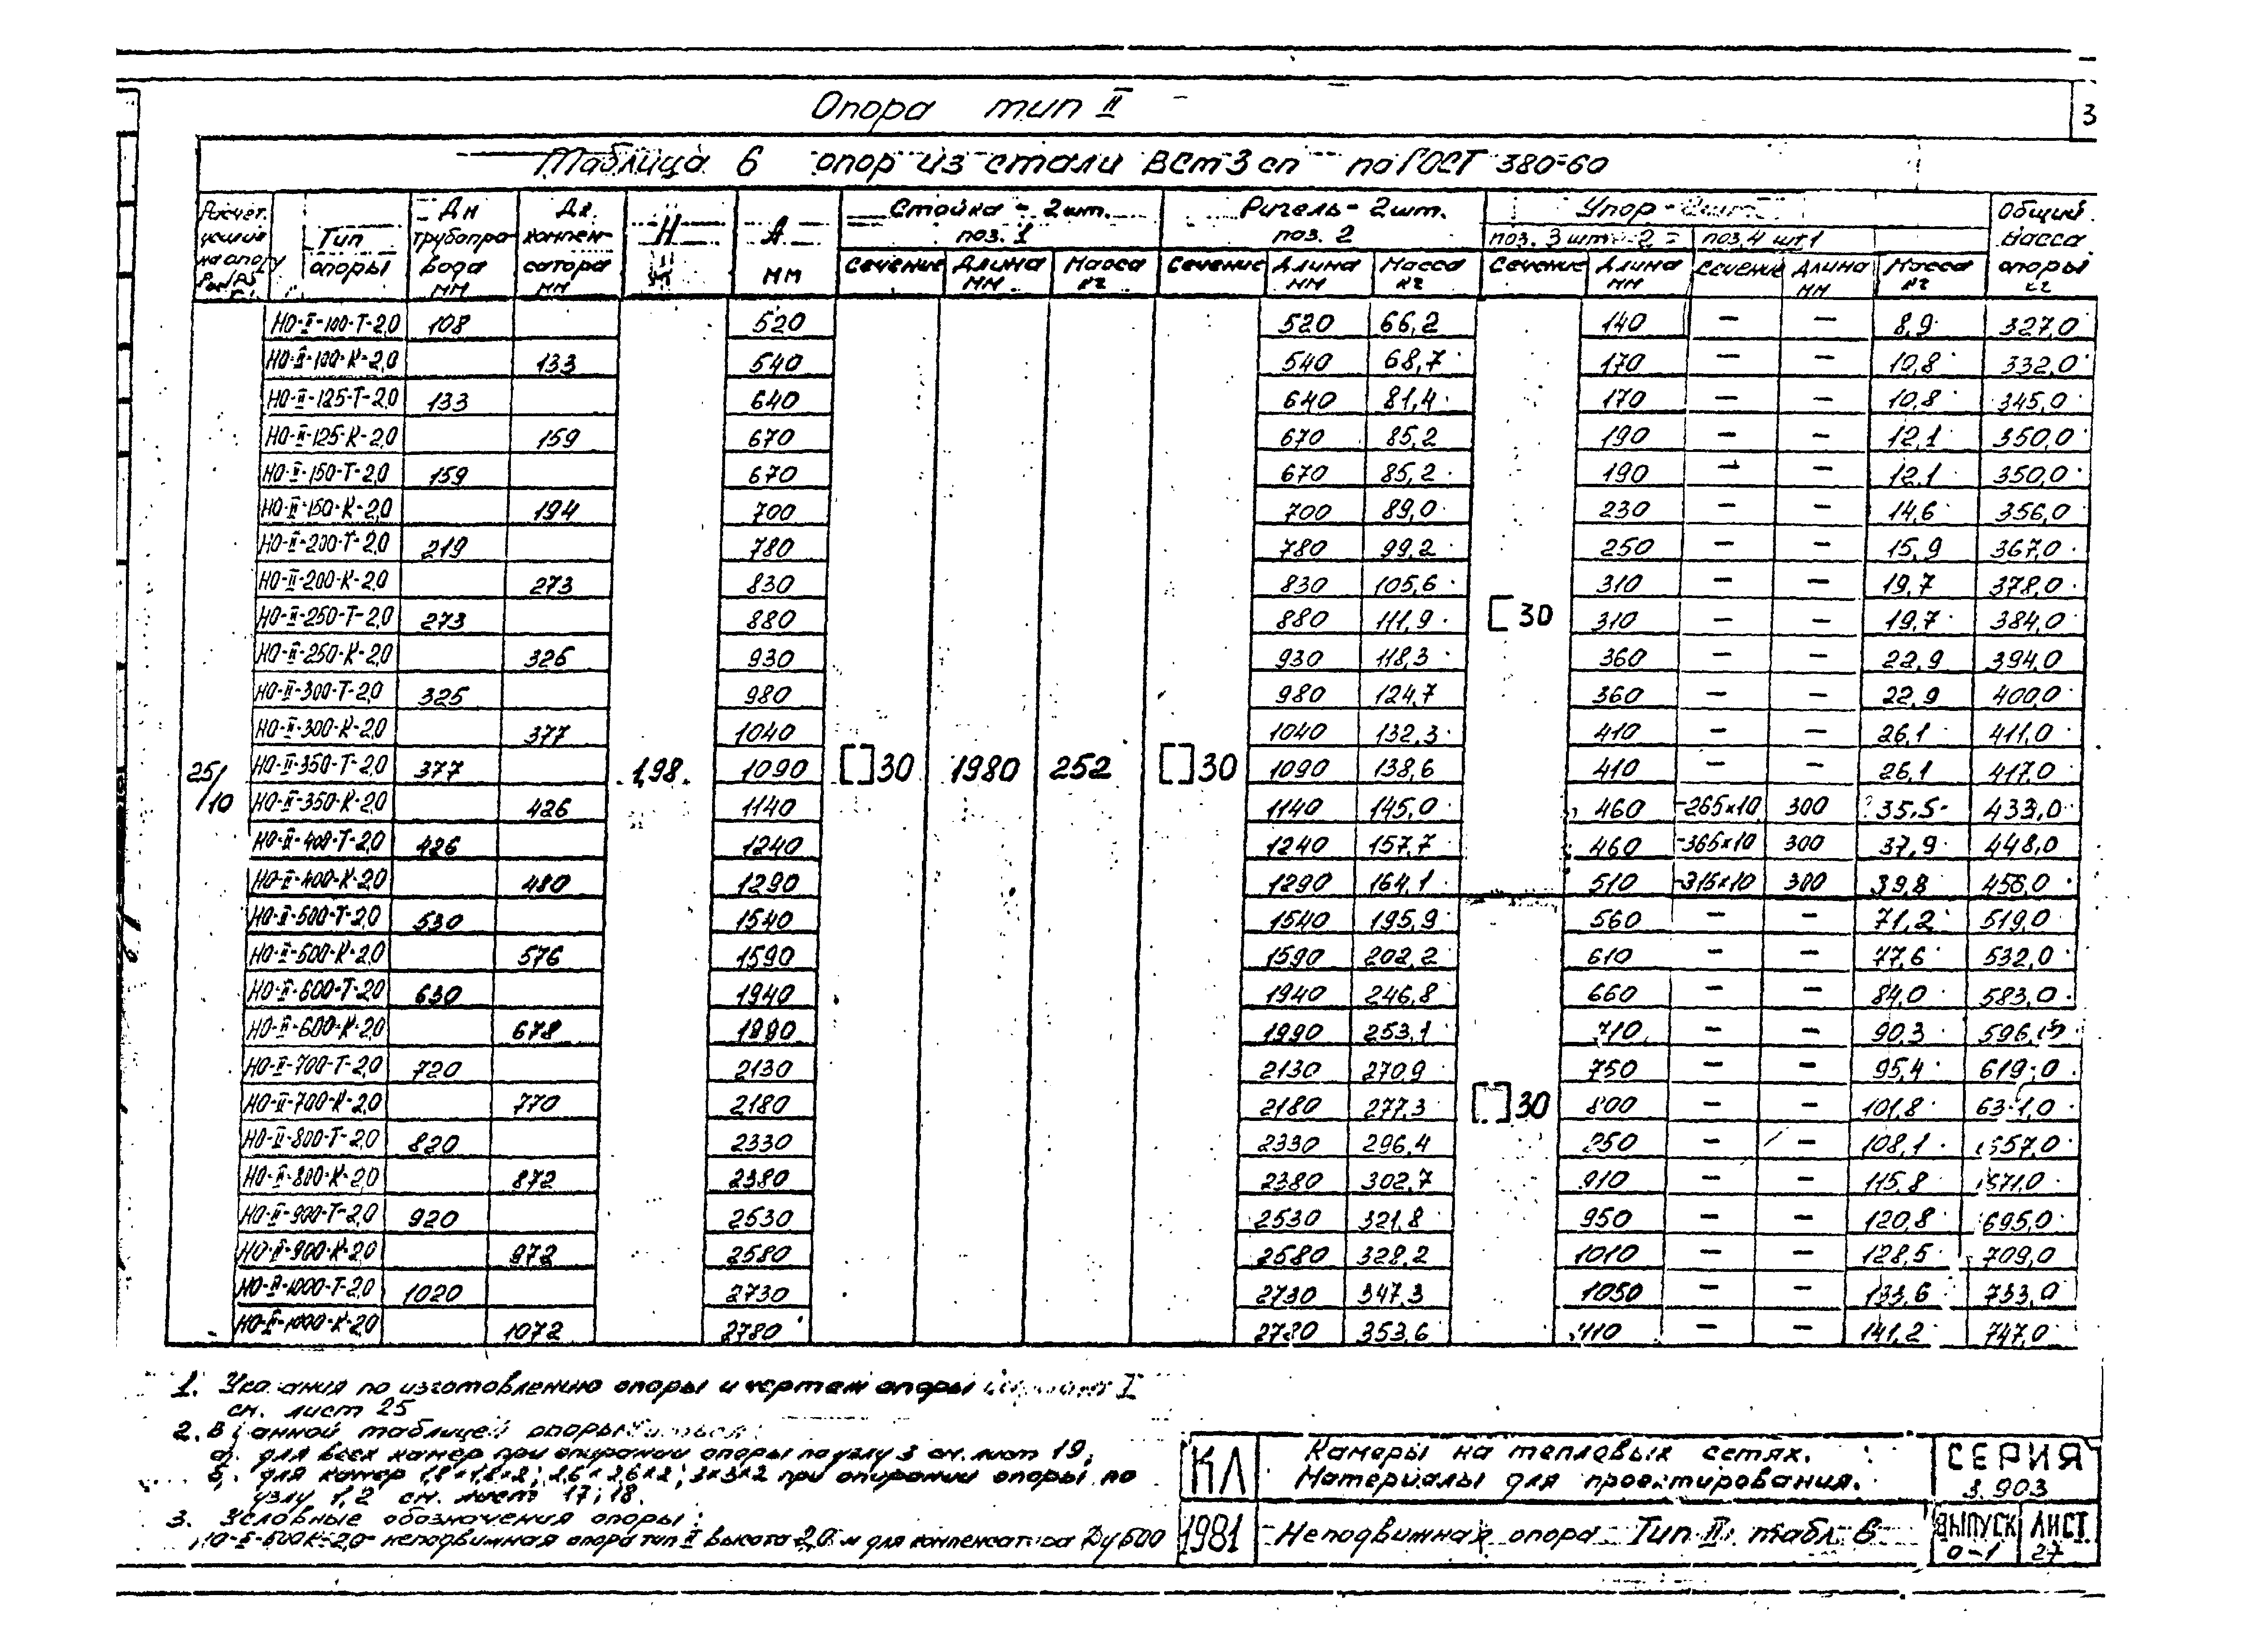 Опора тип II
3
Таблица 6 опор из стали ВСт3сп по ГОСТ 380-60
Расчет. усилие на опору
Тип опоры
Дн трубопровода мм
Дк компенсатора мм
Н м
А мм
Стойка - 2шт. поз. 1
Ригель - 2шт. поз. 2
Упор - 2шт.
поз. 3 шт. - 2
поз. 4 шт 1
Общий масса опоры кг
Сечение Длина мм Масса кг Сечение Длина мм Масса кг Сечение Длина мм Сечение Длина мм Масса кг
НО-II-100-Т-2,0 108 520 520 66,2 140 — — 8,9 327,0
НО-II-100-К-2,0 133 540 540 68,7 170 — — 10,8 332,0
НО-II-125-Т-2,0 133 640 640 81,4 170 — — 10,8 345,0
НО-II-125-К-2,0 159 670 670 85,2 190 — — 12,1 350,0
НО-II-150-Т-2,0 159 670 670 85,2 190 — — 12,1 350,0
НО-II-150-К-2,0 194 700 700 89,0 230 — — 14,6 356,0
НО-II-200-Т-2,0 219 780 780 99,2 250 — — 15,9 367,0
НО-II-200-К-2,0 273 830 830 105,6 310 — — 19,7 378,0
НО-II-250-Т-2,0 273 880 880 111,9 [30 310 — — 19,7 384,0
НО-II-250-К-2,0 325 930 930 118,3 360 — — 22,9 394,0
НО-II-300-Т-2,0 325 980 980 124,7 360 — — 22,9 400,0
НО-II-300-К-2,0 377 1040 1040 132,3 410 — — 26,1 411,0
25/10 НО-II-350-Т-2,0 377 1,98 1090 []30 1980 252 []30 1090 138,6 410 — — 26,1 417,0
НО-II-350-К-2,0 426 1140 1140 145,0 460 -265×10 300 35,5 433,0
НО-II-400-Т-2,0 426 1240 1240 157,7 460 -365×10 300 37,9 448,0
НО-II-400-К-2,0 480 1290 1290 164,1 510 -315×10 300 39,8 456,0
НО-II-500-Т-2,0 530 1540 1540 195,9 560 — — 71,2 519,0
НО-II-500-К-2,0 576 1590 1590 202,2 610 — — 77,6 532,0
НО-II-600-Т-2,0 630 1940 1940 246,8 660 — — 84,0 583,0
НО-II-600-К-2,0 678 1990 1990 253,1 710 — — 90,3 596,0
НО-II-700-Т-2,0 720 2130 2130 270,9 750 — — 95,4 619,0
НО-II-700-К-2,0 770 2180 2180 277,3 []30 800 — — 101,8 631,0
НО-II-800-Т-2,0 820 2330 2330 296,4 850 — — 108,1 657,0
НО-II-800-К-2,0 872 2380 2380 302,7 910 — — 115,8 671,0
НО-II-900-Т-2,0 920 2530 2530 321,8 950 — — 120,8 695,0
НО-II-900-К-2,0 972 2580 2580 328,2 1010 — — 128,5 709,0
НО-II-1000-Т-2,0 1020 2730 2730 347,3 1050 — — 133,6 733,0
НО-II-1000-К-2,0 1072 2780 2780 353,6 1110 — — 141,2 747,0
1. Указания по изготовлению опоры и чертеж опоры I
см. лист 25
2. В данной таблицей опоры
а. для всех камер при опирании опоры по узлу 3 см. лист 19;
б. для камер 1,8×1,8×2; 2,6×2,6×2; 3×3×2 при опирании опоры по
узлу 1,2 см. лист 17; 18.
3. Условные обозначения опоры:
НО-II-500К-2,0- неподвижная опора тип II высота 2,0 м для компенсатора Ду500
КЛ
1981
Камеры на тепловых сетях.
Материалы для проектирования.
Неподвижная опора Тип II табл. 6
СЕРИЯ
3.903
ВЫПУСК
0-1
ЛИСТ
27